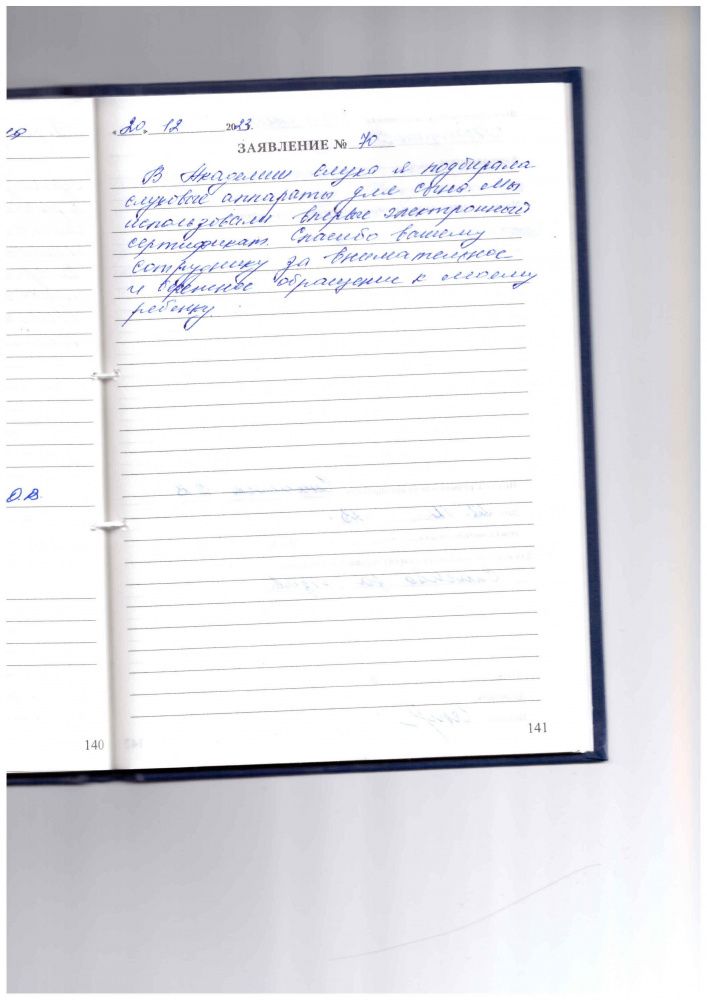 20. 12 2023г.
ЗАЯВЛЕНИЕ № 70
В Академии слуха я подбирала
слуховые аппараты для сына. Мы
использовали впервые электронный
сертификат. Спасибо вашему
сотруднику за внимательное
и бережное обращение к моему
ребенку.
О.В.
140
141